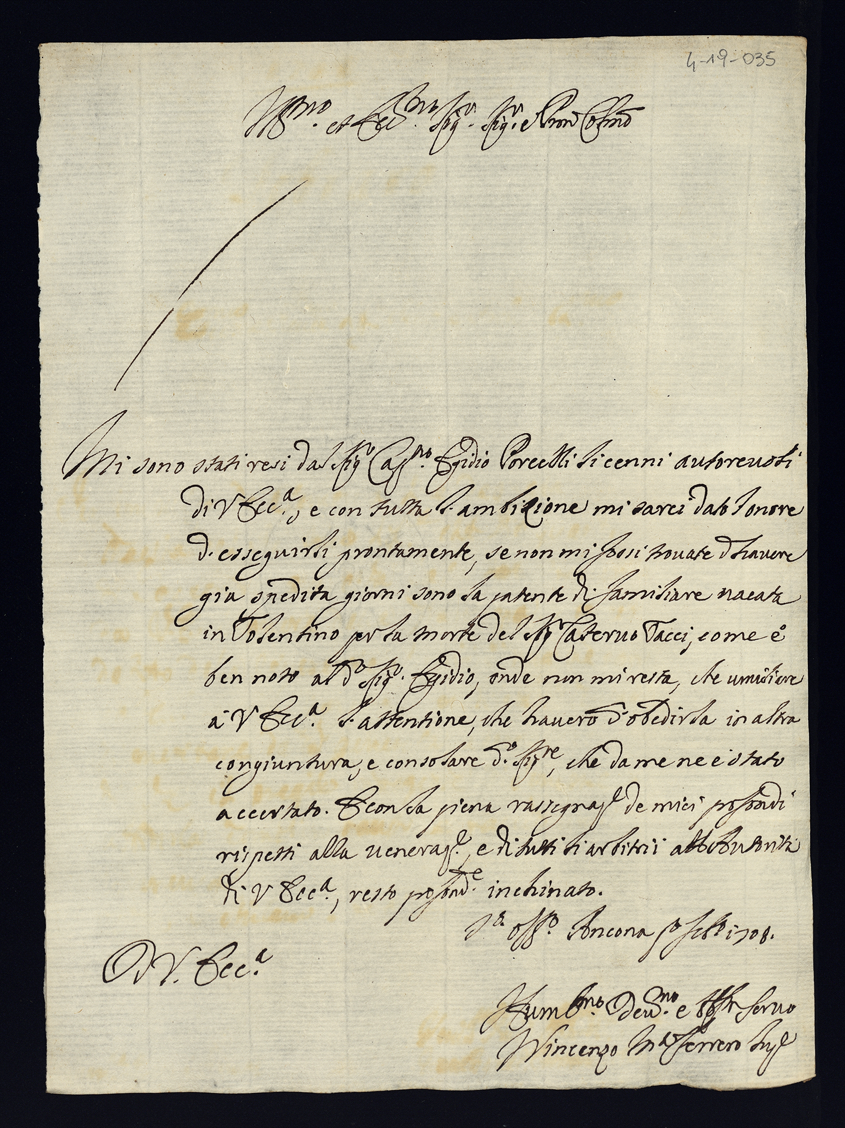 4-19-035
Ill.mo et Ecc.mo Sig.r Sig.r e Pron Col.mo
Mi sono stati resi dal Sig.r Cap.no Egidio Porcelli li cenni autorevoli
di V Ecc.a, e con tutta l'ambizione mi sarei dato l'onore
d'esseguirli prontamente, se non mi fossi trovato d'havere
gia spedita giorni sono la patente di familiare vacata
in Tolentino per la morte del Sig.r Catervo Tacci, come è
ben noto al d.o Sig.r Egidio, onde non mi resta, che umiliare
à V Ecc.a l'attentione, che haverò d'obedirla in altra
congiuntura, e consolare d.o Sig.re, che da me ne è stato
accertato. E con la piena rassegnaz.e de miei profondi
rispetti alla veneraz.e, e di tutti li arbitrii all'Autorità
di V Ecc.a, resto profond.e inchinato.
Ancona p.o 1708.
D V. Ecc.a
Hum.mo Dev.mo e servo
Vincenzo M.a Ferrero Inq.e